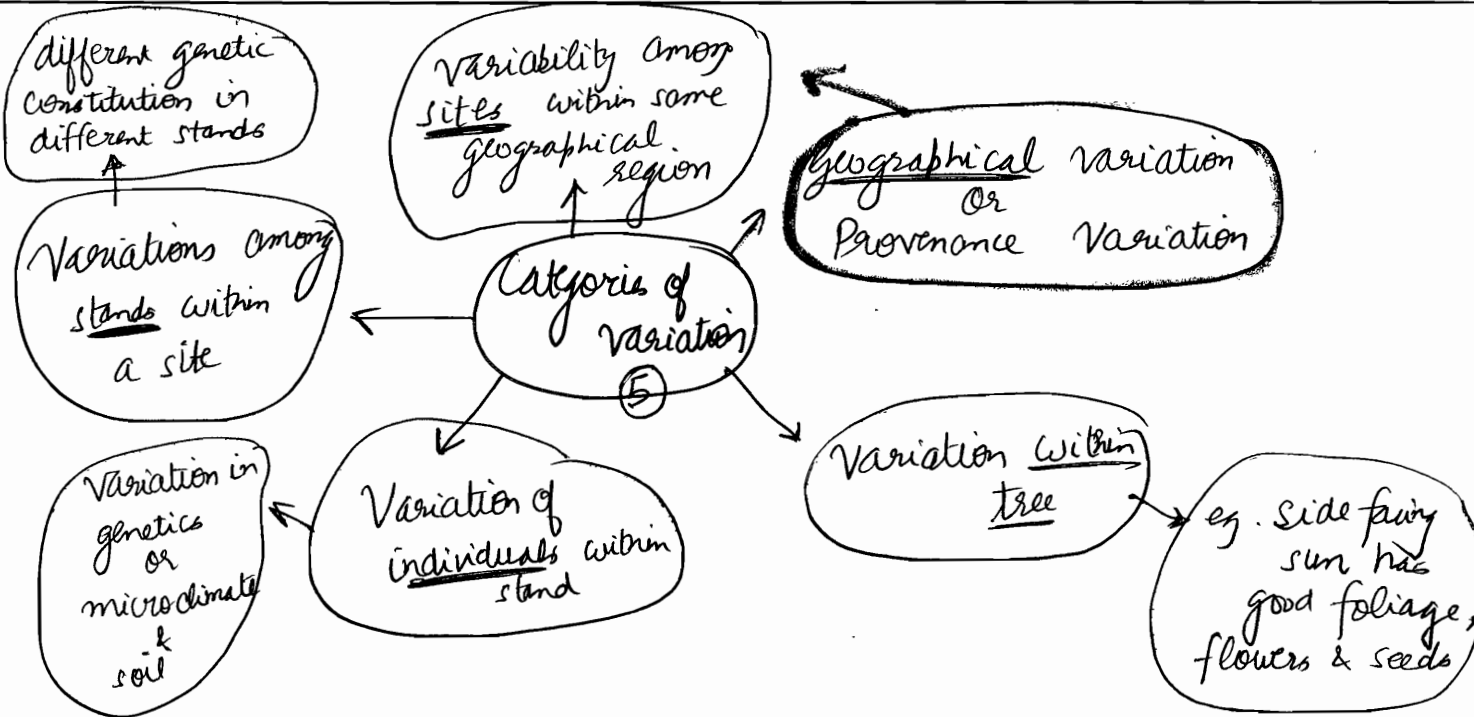 different genetic
constitution in
different stands
Variability among
sites within same
geographical
region
Geographical Variation
Or
Provenance Variation
Variations among
stands within
a site
Categories of
Variation
5
Variation in
genetics
or
microclimate
&
soil
Variation of
individuals within
stand
Variation within
tree
eg. side facing
sun has
good foliage,
flowers & seeds